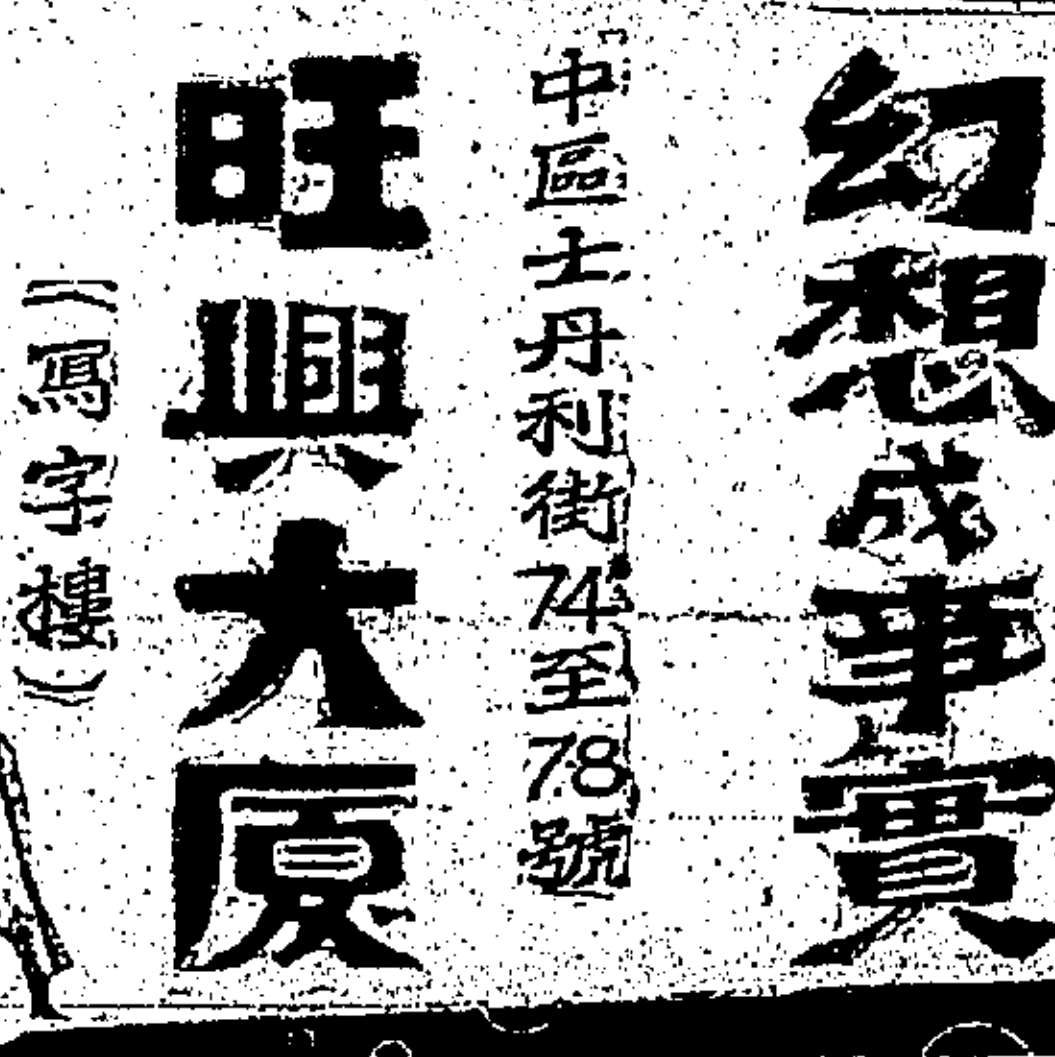 幻想成事實
中區士丹利街74至78號
旺興大厦
(寫字樓)